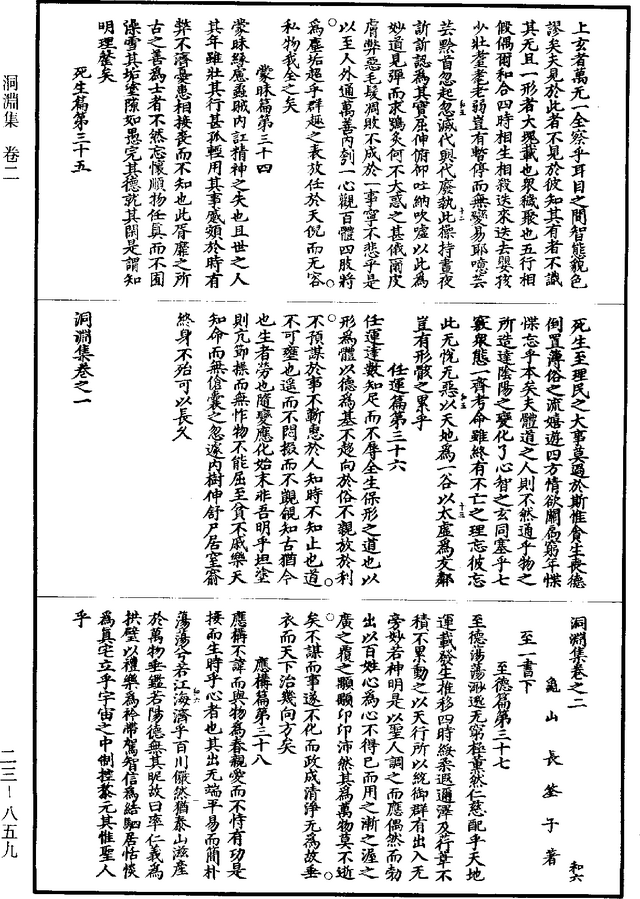 洞淵集 卷二
上玄者萬无一全察乎耳目之間智態貌色
謬矣夫見於此者不見於彼知其有者不識
其无且一形者大塊載也眾穢聚也五行相
假偶爾和合四時相生相殺迭來迭去嬰孩
少壯耆耄老弱豈有暫停而無變易耶噫芸
芸黔首忽起忽滅代興代廢執此操持晝夜
訢訢認為其寶屈伸俯仰吐納吹噓以此為
妙道見彈而求鴞炙何不大惑之甚俄爾皮
膚弊惡毛髮凋敗不成於一事寧不悲乎是
以至人外通萬善內刳一心觀百體四肢將
為塵垢超乎群趣之表放任於天倪而无容
私物我全之矣
蒙昧篇第三十四
蒙昧緣慮盜賊內訌精神之失也且世之人
其年雖壯其行甚孤輕用其事慼頞於時有
弊不濟憂患相接喪而不知也此胥靡之所
古之善為士者不然忘懷順物任真而不固
澡雪其垢塗隙如愚完其德乾其闕是謂知
明理鏧矣
死生篇第三十五
死生至理民之大事莫過於斯惟貪生喪德
倒置薄俗之流嬉遊四方情欲闌扃窮年惵
惵忘乎本矣夫體道之人則不然通乎物之
所造達陰陽之變化了心智之玄同塞乎七
竅眾態一齊考命雖終有不亡之理忘彼忘
此无悅无惡以天地為一谷以太虛為友鄰
豈有形骸之累乎
任運篇第三十六
任運達數知足而不辱全生保形之道也以
形為體以德為基不超向於俗不親放於利
不預謀於事不蘄惠於人知時不知止也道
不可壅也遥而不悶掇而不覬覦知古猶今
也生者勞也隨變應化始末非吾明乎坦塗
則亢節操而無怍物不能屈至貧不慼樂天
知命而無傖囊之忽遽內樹伸舒尸居室齋
終身不殆可以長久
洞淵集卷之一
洞淵集卷之二 和六
龜山長筌子著
至一書下
至德篇第三十七
至德蕩蕩渺邈无窮輊薰然仁慈配乎天地
運載發生推移四時緻柔遐邇澤及荇葦不
積不累動之以天行所以統御群有出入无
旁妙若神明是以聖人調之而應偶然而勃
出以百姓心為心不得已而用之漸之渥之
廣之覆之顒顒卬卬沛然其為萬物莫不逝
矣不謀而事遂不化而政成清淨无為故垂
衣而天下治幾向方矣
應構篇第三十八
應構不諱而與物為春親愛而不恃有功是
接而生時乎心者也其出无端平易而簡朴
蕩蕩兮若江海濟乎百川儼然猶泰山滋產
於萬物垂鑑若陽德無其昵故曰率仁義為
拱璧以禮樂為衿帶駕智信為結駟居恬惔
為真宅立乎宇宙之中制控綦元其惟聖人
乎
二三—八五九